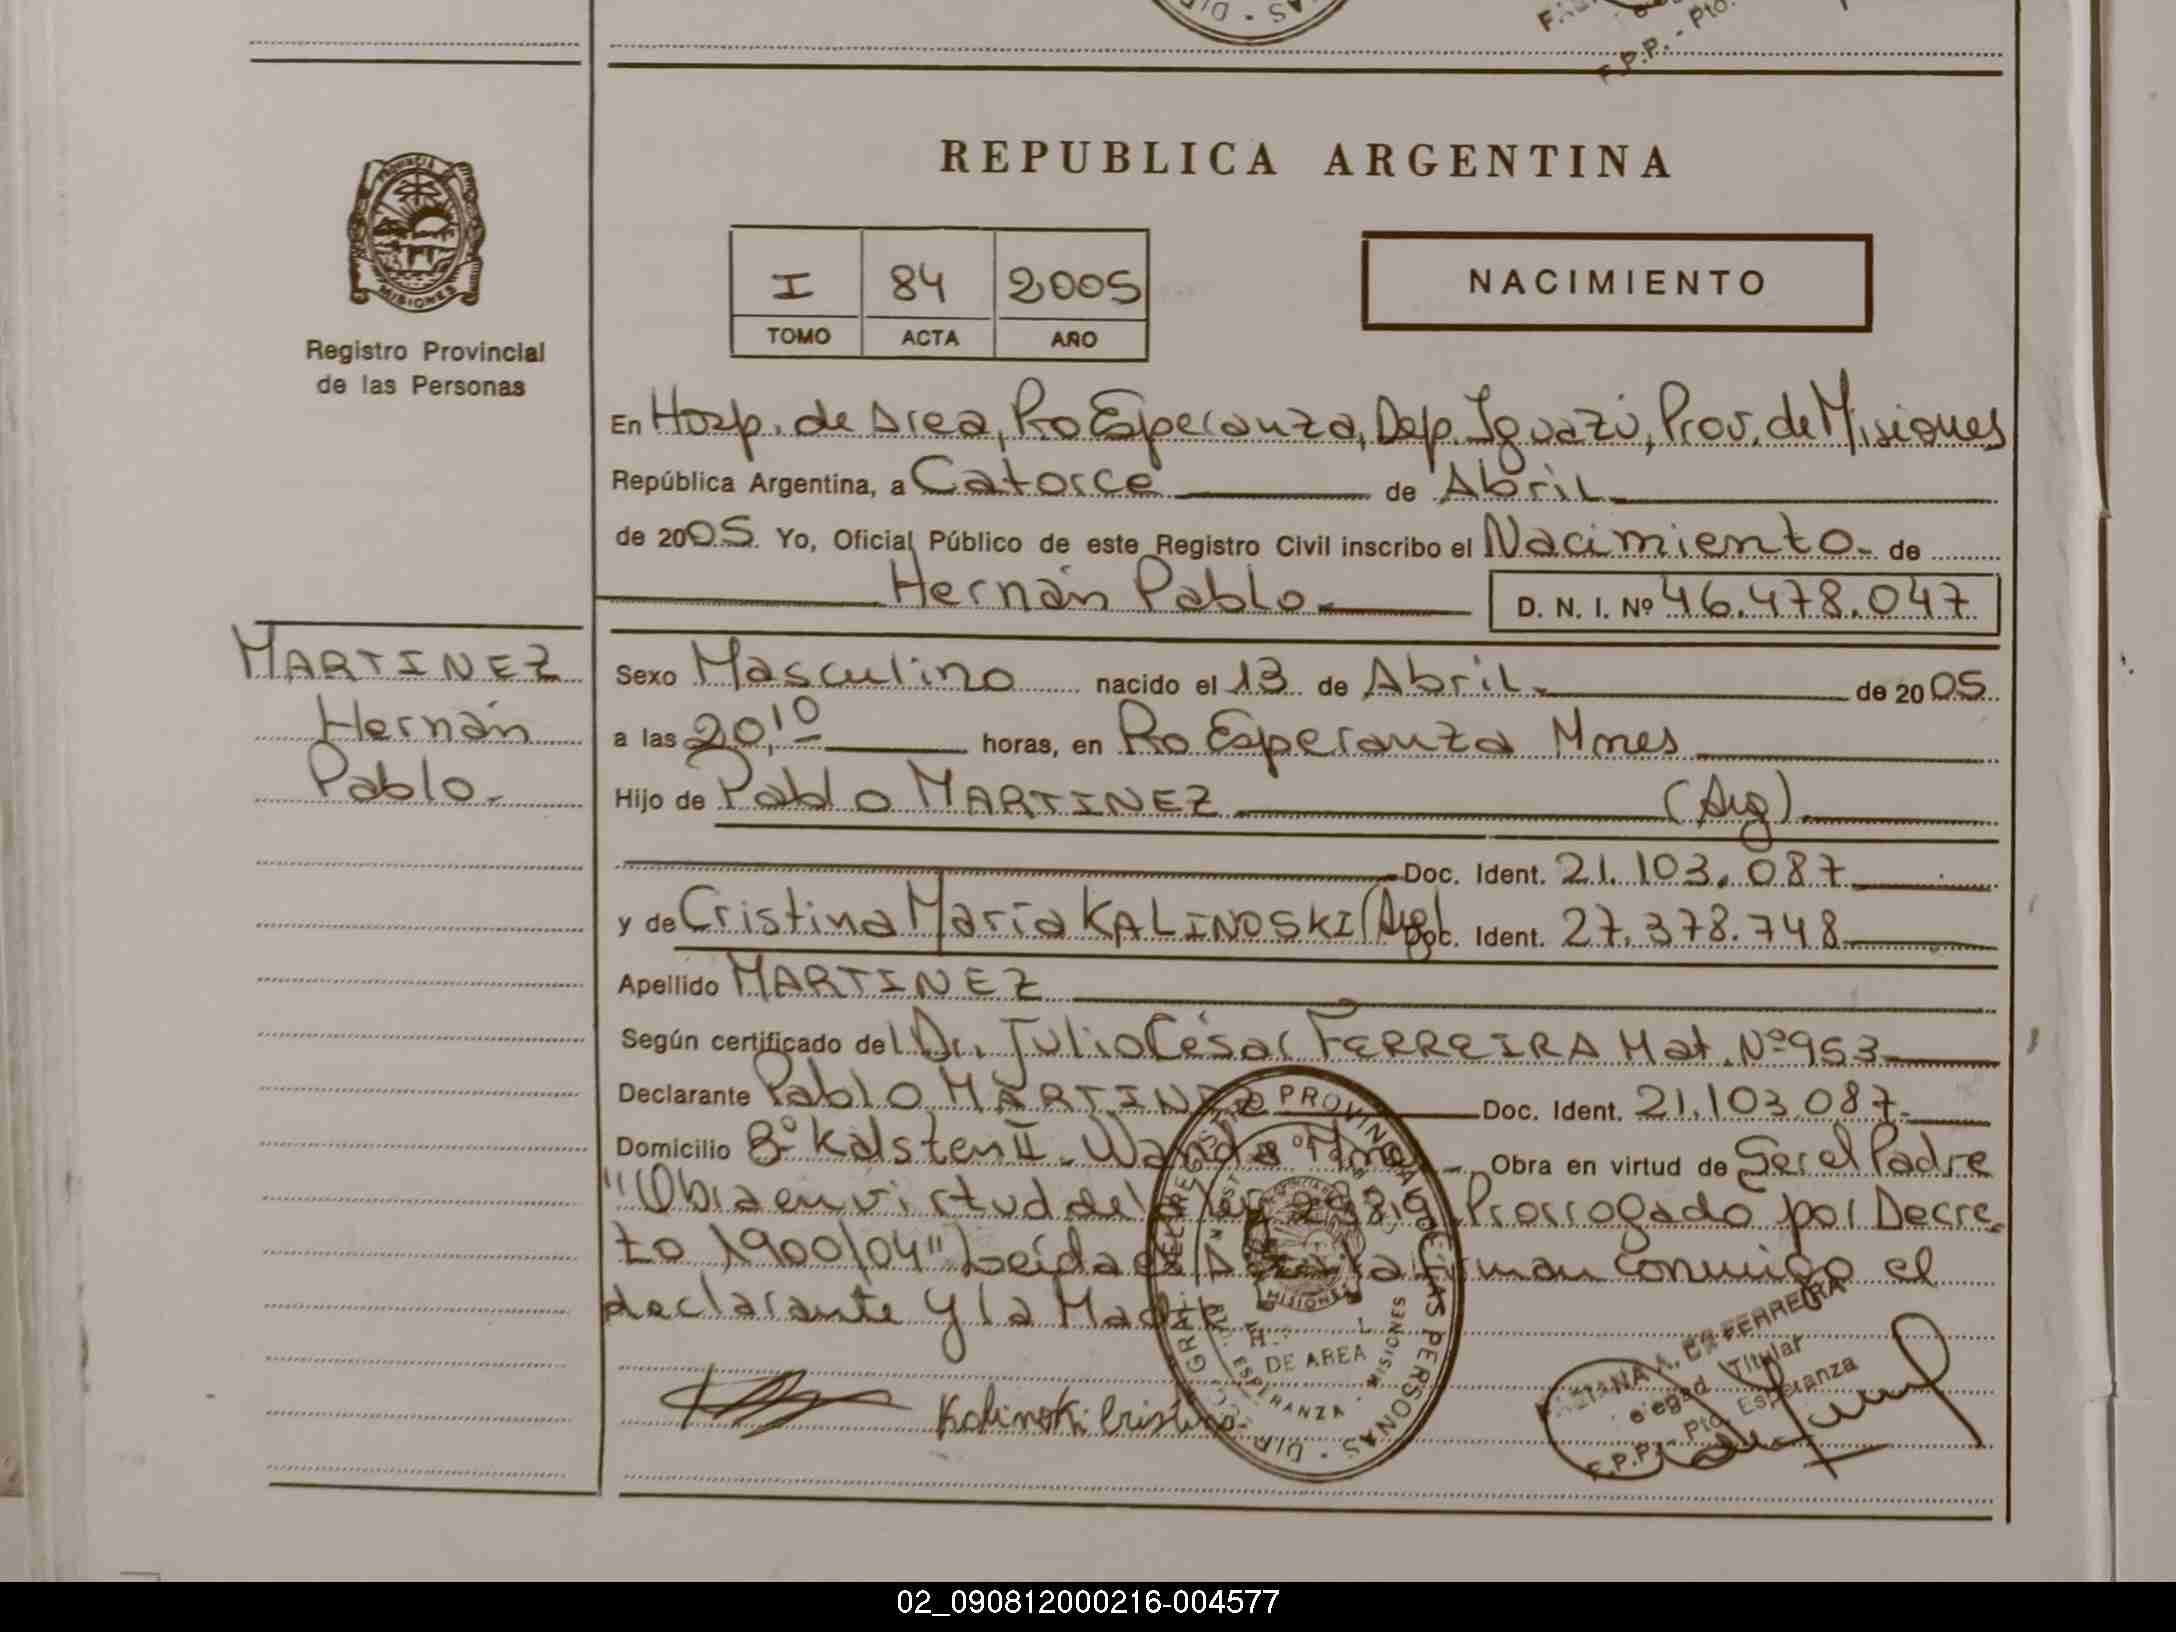 REPUBLICA ARGENTINA
PROVINCIA
MISIONES
Registro Provincial
de las Personas
I 84 2005
TOMO ACTA AÑO
NACIMIENTO
En Hosp. de Area, Pto Esperanza, Dep. Iguazú, Prov. de Misiones
República Argentina, a Catorce de Abril
de 2005. Yo, Oficial Público de este Registro Civil inscribo el Nacimiento de
Hernán Pablo D. N. I. Nº 46.478.047
MARTINEZ
Hernán
Pablo.
Sexo Masculino nacido el 13 de Abril de 2005
a las 20,10 horas, en Pto Esperanza Mnes
Hijo de Pablo MARTINEZ (Arg)
Doc. Ident. 21.103.087
y de Cristina María KALINOSKI (Arg) Doc. Ident. 27.378.748
Apellido MARTINEZ
Según certificado del Dr. Julio César FERREIRA Mat. Nº 953
Declarante Pablo MARTINEZ Doc. Ident. 21.103.087
Domicilio Bº Kalsten II. Wanda Mnes Obra en virtud de Ser el Padre
"Obra en virtud de la ley Prorrogado por Decre
to 1900/04" Leída el Acta la firman conmigo el
declarante y la Madre
Kalinoski Cristina
REGISTRO PROVINCIAL DE LAS PERSONAS
MISIONES
DE AREA
ESPERANZA - MISIONES
FERREIRA
Titular
R.P.P. - Pto. Esperanza
02_090812000216-004577